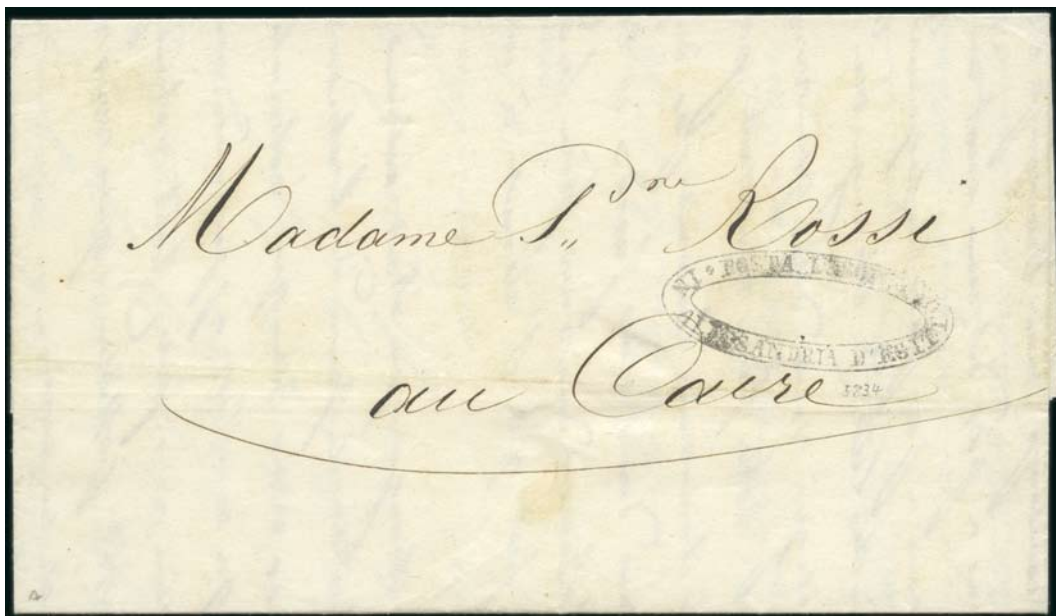 Madame Rossi
POSTA
ALESSANDRIA D'EGITTO
au Caire
3234